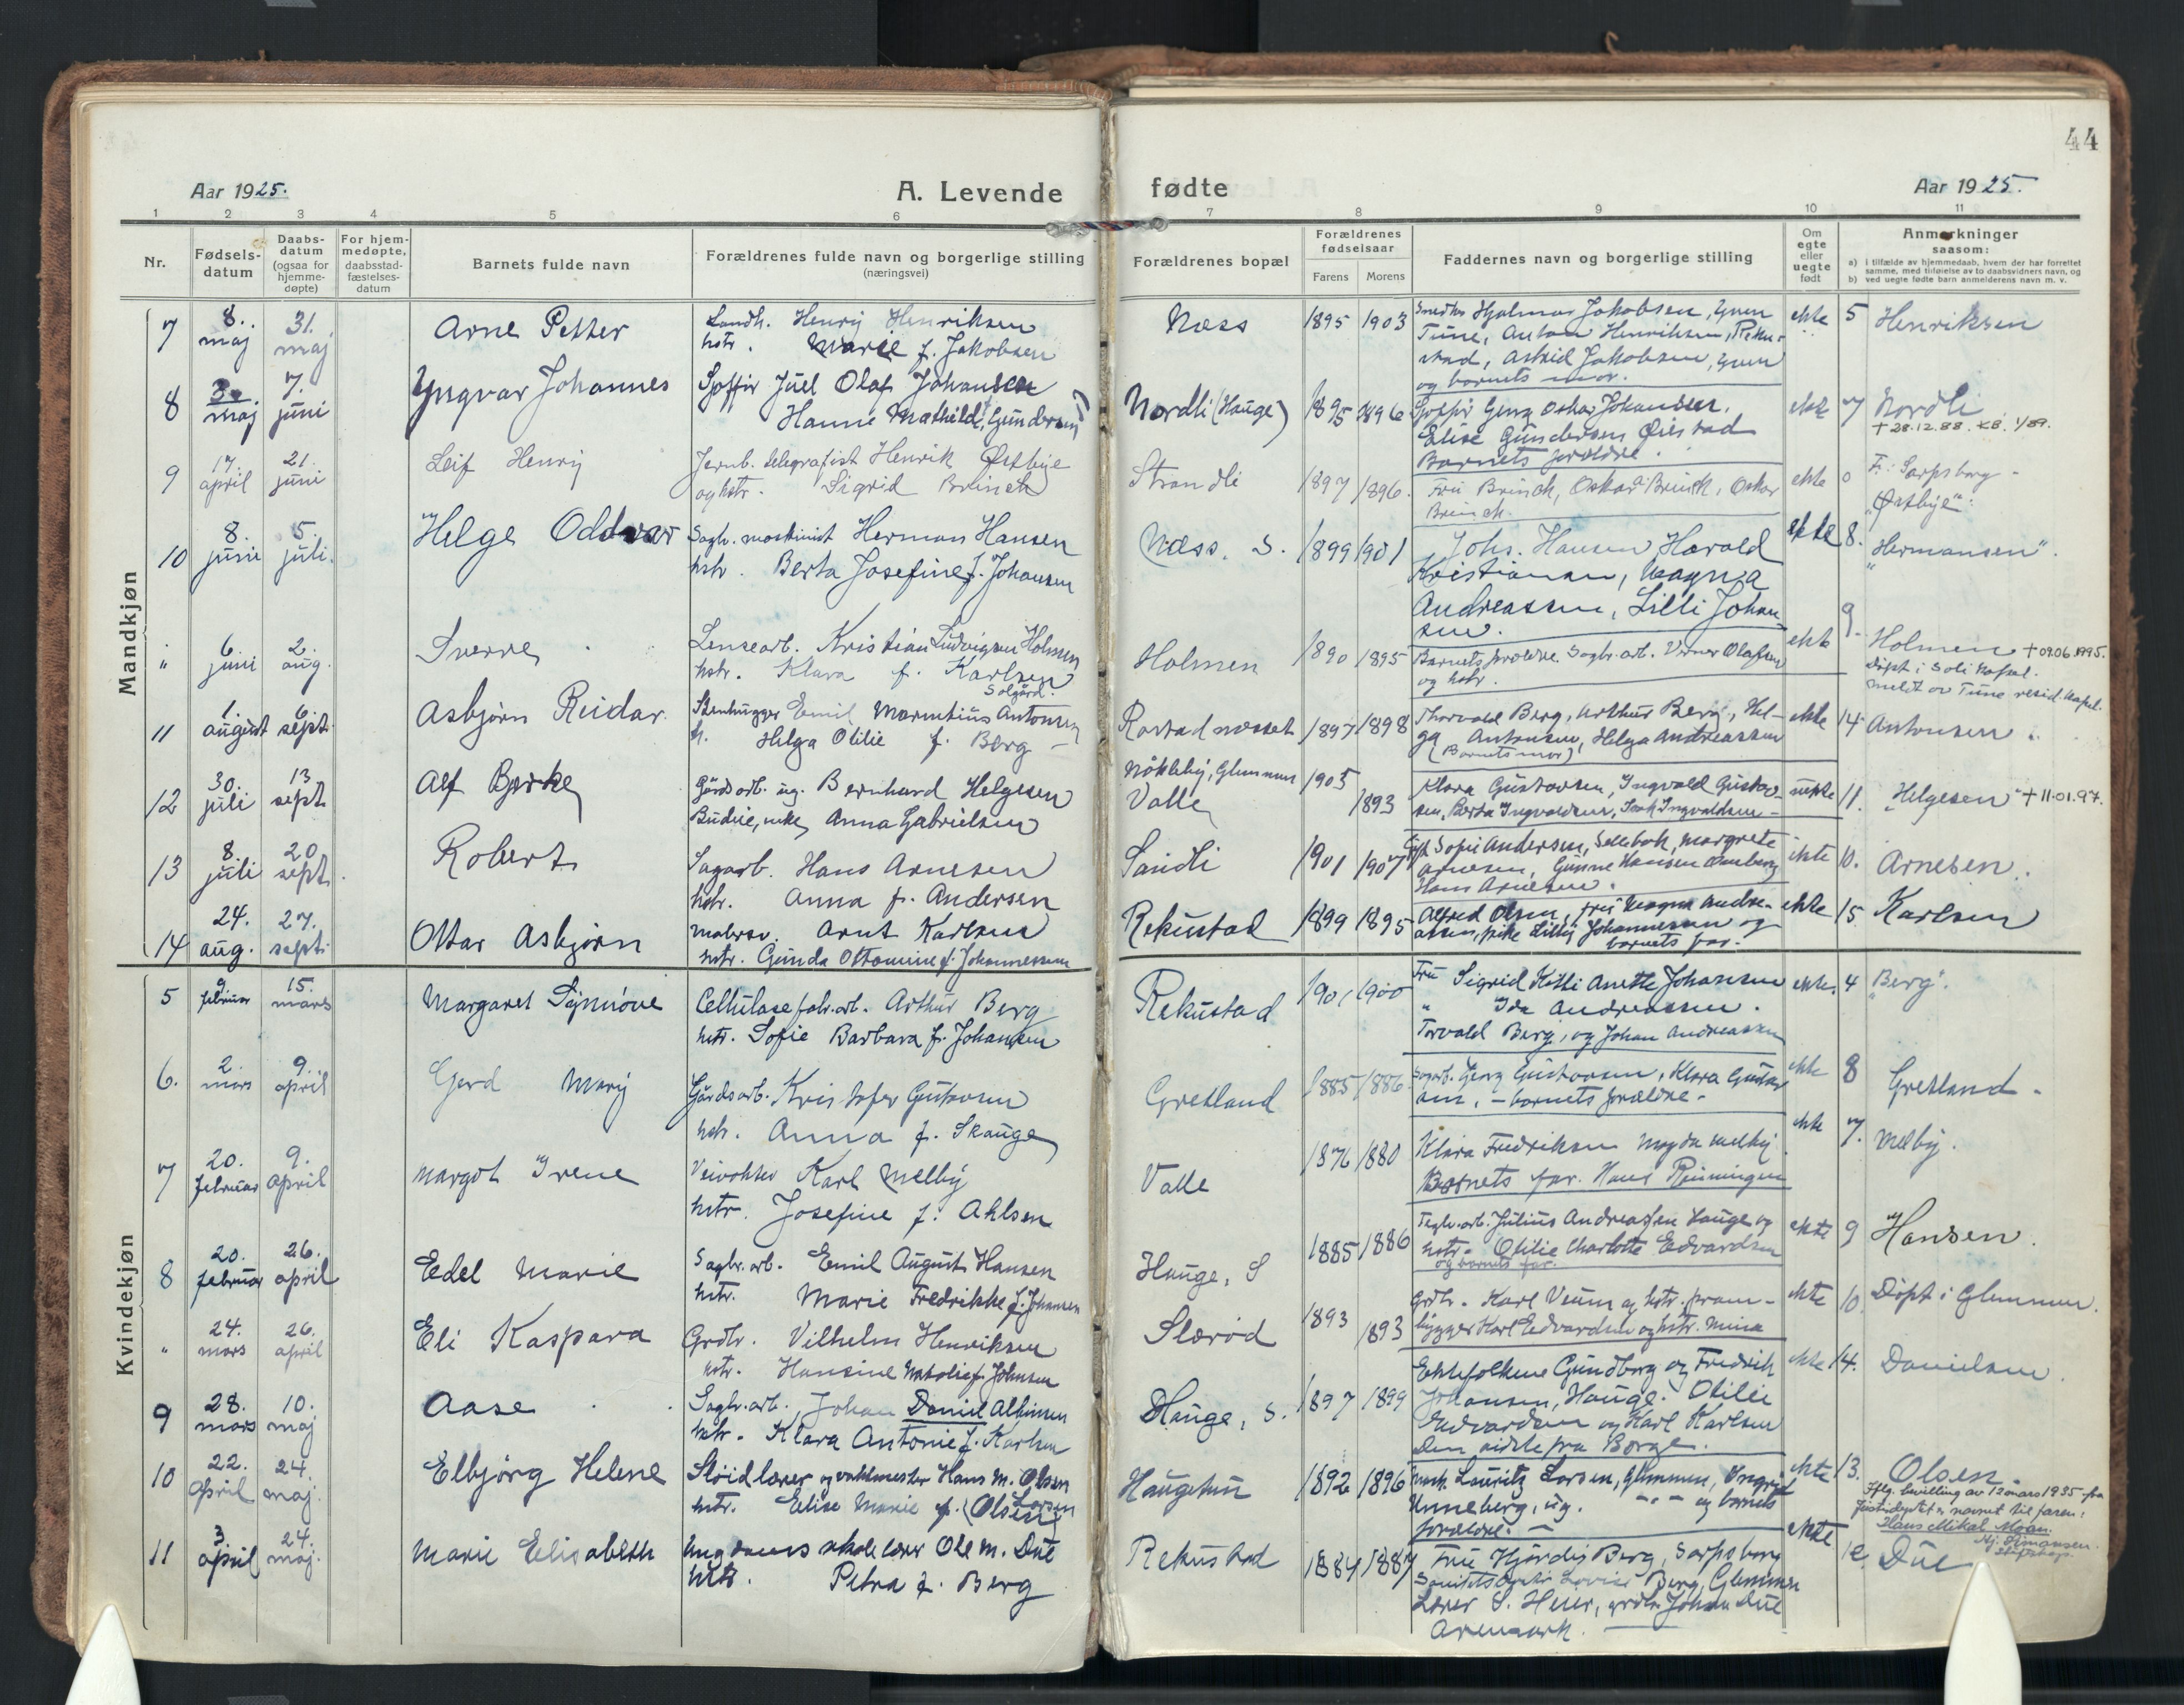 44
Aar 1925.
A. Levende fødte
Aar 1925.
1 2 3 4 5 6 7 8 9 10 11
Nr.
Fødsels-
datum
Daabs-
datum
(ogsaa for
hjemme-
døpte)
For hjem-
medøpte,
daabsstad-
fæstelses-
datum
Barnets fulde navn
Forældrenes fulde navn og borgerlige stilling
(næringsvei)
Forældrenes bopæl
Forældrenes
fødselsaar
Farens Morens
Faddernes navn og borgerlige stilling
Om
egte
eller
uegte
født
Anmerkninger
saasom:
a) i tilfælde av hjemmedaab, hvem der har forrettet
samme, med tilføielse av to daabsvidners navn, og
b) ved uegte fødte barn anmelderens navn m. v.
Mandkjøn
7 8. maj 31. maj Arne Petter
Landh. Henry Henriksen
hstr. Marie f. Jakobsen
Næss 1895 1903
Hjalmar Jakobsen,
Tune, Anton Henriksen, Reku-
stad, Astrid Jakobsen,
og barnets mor.
ekte 5 Henriksen
8 3. maj 7. juni Yngvar Johannes
Juel Olaf Johansen
Hanne Mathilde Gundersen
Nordli (Hauge) 1895 1896
Georg Oskar Johansen,
Elise Gundersen
Barnets forældre.
ekte 7 Nordli
+ 28.12.88. KB. 1/89.
9 17. april 21. juni Leif Henry
Jernb. telegrafist Henrik Østbye
og hstr. Sigrid Brinch
Strandli 1897 1896.
Fru Brinch, Oskar Brinch, Oskar
Brinch.
ekte 0 Fr. Sarpsborg -
"Østbye".
10 8. juni 5. juli. Helge Oddvar
Sagbr. maskinist Herman Hansen
hstr. Berta Josefine f. Johansen
Næss. S. 1899 1901
Johs. Hansen, Harald
Kristiansen, Magna
Andreassen, Lilli Johan-
sen.
ekte 8. "Hermansen".
" 6. juni 2. aug. Sverre
Lensearb. Kristian Ludvigsen Holmen
hstr. Klara f. Karlsen
Solgård.
Holmen 1890 1895
Barnets forældre. Sagbr. arb. Verner Olafsen
og hstr.
ekte 9. Holmen + 09.06.1995.
Døpt i Soli Kapel.
meldt av Tune resid. kapel.
11 1. august 6. sept. Asbjørn Reidar.
Stenhugger Emil Marentius Antonsen
h. Helga Otilie f. Berg -
Rostadnesset 1897 1898
Thorvald Berg, Arthur Berg, Hel-
ga Antonsen, Helga Andreassen
(Barnets mor)
ekte 14 Antonsen.
12 30. juli 13 sept. Alf Bjerke
Gårdsarb. ug. Bernhard Helgesen
Budeie, enke, Anna Gabrielsen
Nøkleby, Glemmen 1905
Valle 1893
Klara Gustavsen, Ingvald Gustav-
sen, Berta Ingvaldsen, Ingvaldsen -
uekte 11. Helgesen + 11.01.97.
13 8. juli 20 sept. Robert
Sagarb. Hans Arnesen
hstr. Anna f. Andersen
Sandli 1901 1907
Sofie Andersen, Sellebak, Margrete
Arnesen, Gunne Hansen
Hans Arnesen.
ekte 10. Arnesen.
14 24. aug. 27. sept. Ottar Asbjørn
Malersv. Arnt Karlsen
hstr. Gunda Ottomine f. Johannessen
Rekustad 1899 1895
Alfred Olsen, fru Magna Andre-
assen, frk. Lilly Johannessen og
barnets far.
ekte 15. Karlsen
Kvindekjøn
5 9. februar 15. mars Margaret Synnøve
Cellulosefabr. arb. Arthur Berg
hstr. Sofie Barbara f. Johansen
Rekustad 1901 1900
Fru Sigrid Kitli Anette Johansen
" Ida Andreassen.
Torvald Berg, og Johan Andreassen
ekte. 4 "Berg".
6. 2. mars 9. april Gerd Mary
Gårdsarb. Kristofer Gustavsen
hstr. Anna f. Skauge
Gretland 1885 1886
Sagarb. Georg Gustavsen, Klara Gustav-
sen, - barnets forældre -
ekte 8 Gretland -
7 20. februar 9. april Margot Irene
Veivokter Karl Melby
hstr. Josefine f. Ahlsen
Valle 1876 1880
Klara Fredriksen Magda Melby
Barnets far. Hans Rønningen
ekte 7. Melby.
8 20. februar 26. april Edel Marie
Sagbr. arb. Emil August Hansen
hstr. Marie Fredrikke f. Johansen
Hauge, S 1885 1886
Teglv. arb. Julius Andreassen Hauge og
hstr. Otilie Charlotte Edvardsen
og barnets far.
ekte 9 Hansen.
" 24. mars 26. april Eli Kaspara
Grdbr. Vilhelm Henriksen
hstr. Hansine Natalie f. Johnsen
Slærød 1893 1893
Grdbr. Karl Veum og hstr. pram-
bygger Karl Edvardsen og hstr. Mina
ekte 10. Døpt i Glemmen.
9 28. mars 10. maj Aase
Sagbr. arb. Johan Daniel Albinsen
hstr. Klara Antonie f. Karlsen
Hauge, S. 1897 1899
Ektefolkene Gundborg og Fredrik
Johansen, Hauge. Otilie
Edvardsen og Karl Karlsen
Den sidste fra Borge.
ekte 14. Danielsen.
10 22. april 24. maj. Elbjørg Helene
Sløidlærer og vaktmester Hans M. Olsen
hstr. Elise Marie f. Larsen (Olsen)
Haugetun 1892 1896
Lauritz Larsen, Glemmen, Ingrid
Unneberg, ug. -"- og barnets
forældre. -
ekte 13. Olsen.
Iflg. bevilling av 12 mars 1935 fra
Justisdeptet er navnet til faren:
Hans Mikal Moan.
11 3 april 24. maj. Marie Elisabeth
Ungdomsskolelærer Ole M. Due
hstr. Petra f. Berg
Rekustad 1884 1887
Fru Hjørdis Berg, Sarpsborg
Lovise Berg, Glemmen
Lærer S. Heier, grdbr. Johan Due
Aremark.
ekte 12. Due